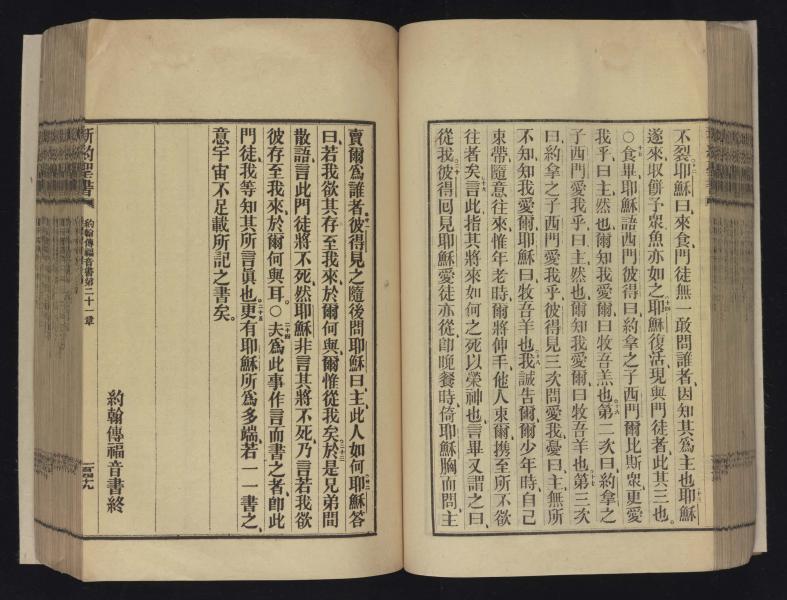 不裂、耶穌曰、來食、門徒無一敢問誰者、因知其爲主也、耶穌
遂來取餅予衆、魚亦如之、耶穌復活、現與門徒者、此其三也。
○食畢、耶穌語西門彼得曰、約拿之子西門、爾比斯衆更愛
我乎、曰、主、然也、爾知我愛爾、曰、牧吾羔也、第二次曰、約拿之
子西門、愛我乎、曰、主、然也、爾知我愛爾、曰、牧吾羊也、第三次
曰、約拿之子西門、愛我乎、彼得見三次問愛我、憂曰、主無所
不知、知我愛爾、耶穌曰、牧吾羊也、我誠告爾、爾少年時、自己
束帶、隨意往來、惟年老時、爾將伸手、他人束爾、攜至所不欲
往者矣、言此、指其將來如何之死、以榮神也、言畢、又謂之曰、
從我、彼得回見耶穌愛徒亦從、即晚餐時、倚耶穌胸而問、主
賣爾爲誰者、彼得見之、隨後問耶穌曰、主、此人如何、耶穌答
曰、若我欲其存至我來、於爾何與、爾惟從我矣、於是兄弟間
散語、言此門徒將不死、然耶穌非言其將不死、乃言若我欲
彼存至我來、於爾何與耳。○夫爲此事作言而書之者、即此
門徒、我等知其所言眞也、更有耶穌所爲多端、若一一書之、
意宇宙不足載所記之書矣。
約翰傳福音書終
新約聖書
約翰傳福音書第二十一章